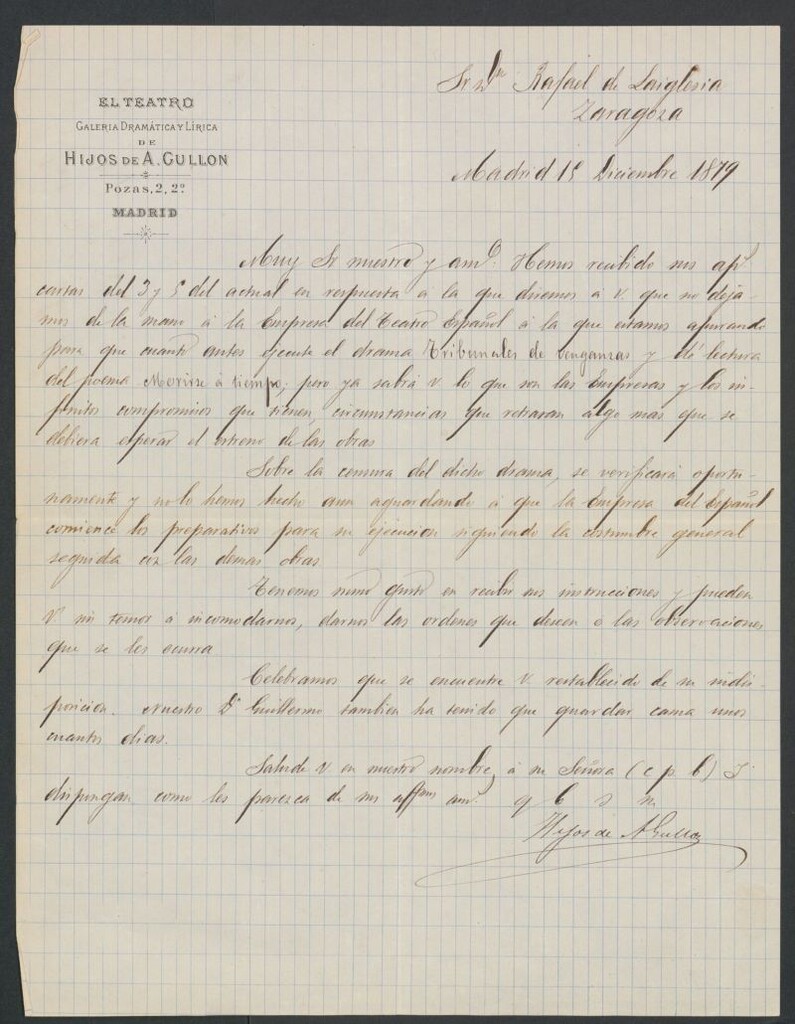 EL TEATRO
GALERIA DRAMÁTICA Y LÍRICA
DE
HIJOS DE A. GULLON
Pozas, 2, 2º
MADRID
Sr. Dn Rafael de Laiglesia
Zaragoza
Madrid 15 Diciembre 1879
Muy Sr nuestro y amº. Hemos recibido sus ap.
cartas del 3 y 5 del actual en respuesta á la que dicemos á V. que no deja-
mos de la mano á la Empresa del Teatro Español á la que estamos apurando
para que cuanto antes ejecute el drama Tribunales de venganzas y dé lectura
del poema Morirse á tiempo, pero ya sabrá V. lo que son las Empresas y los in-
finitos compromisos que tienen, circunstancias que retrasan algo mas que se
debiera esperar el estreno de las obras
Sobre la censura del dicho drama, se verificará oportu-
namente y no lo hemos hecho aun aguardando á que la Empresa del Español
comience los preparativos para su ejecucion siguiendo la costumbre general
seguida con las demas obras
Tenemos sumo gusto en recibir sus instrucciones y pueden
Vs sin temor á incomodarnos, darnos las ordenes que deseen ó las observaciones
que se les ocurra
Celebramos que se encuentre V. restablecido de su indis-
posicion. Nuestro Dn Guillermo tambien ha tenido que guardar cama unos
cuantos dias.
Salude V en nuestro nombre, á su Señora (c p b) y
dispongan como les parezca de sus affmos ams. q b s m
Hijos de A Gullon